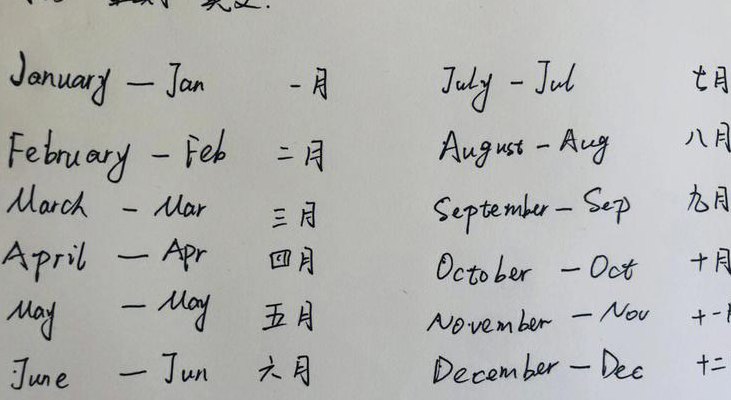 英文:
January - Jan 一月
February - Feb 二月
March - Mar 三月
April - Apr 四月
May - May 五月
June - Jun 六月
July - Jul 七月
August - Aug 八月
September - Sep 九月
October - Oct 十月
November - Nov 十一
December - Dec 十二